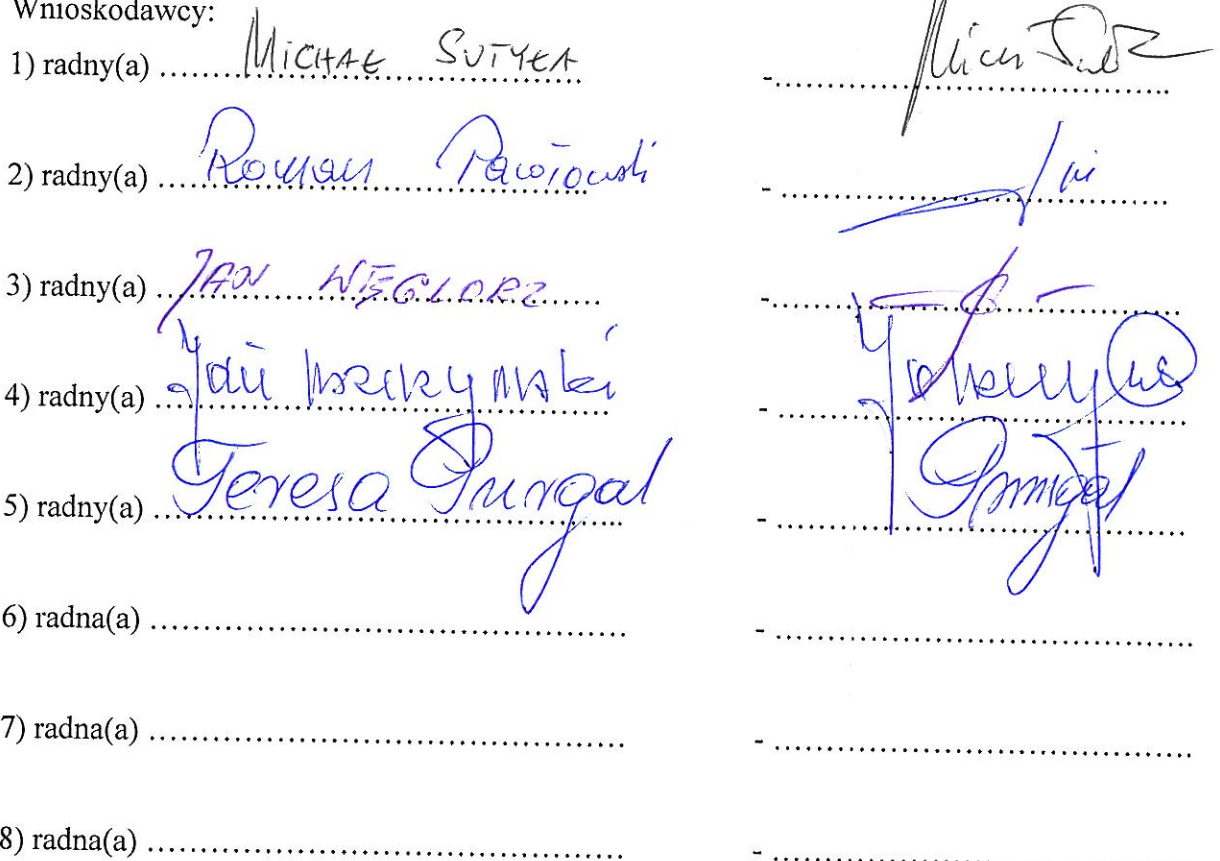 Wnioskodawcy:
1) radny(a) ..... MICHAŁ SUTYŁA -.....
2) radny(a) ..... Roman Pawłowski -.....
3) radny(a) ..... JAN WĘGLORZ -.....
4) radny(a) ..... -.....
5) radny(a) ..... Teresa Purgał -..... Purgał
6) radna(a) ..... -.....
7) radna(a) ..... -.....
8) radna(a) ..... -.....